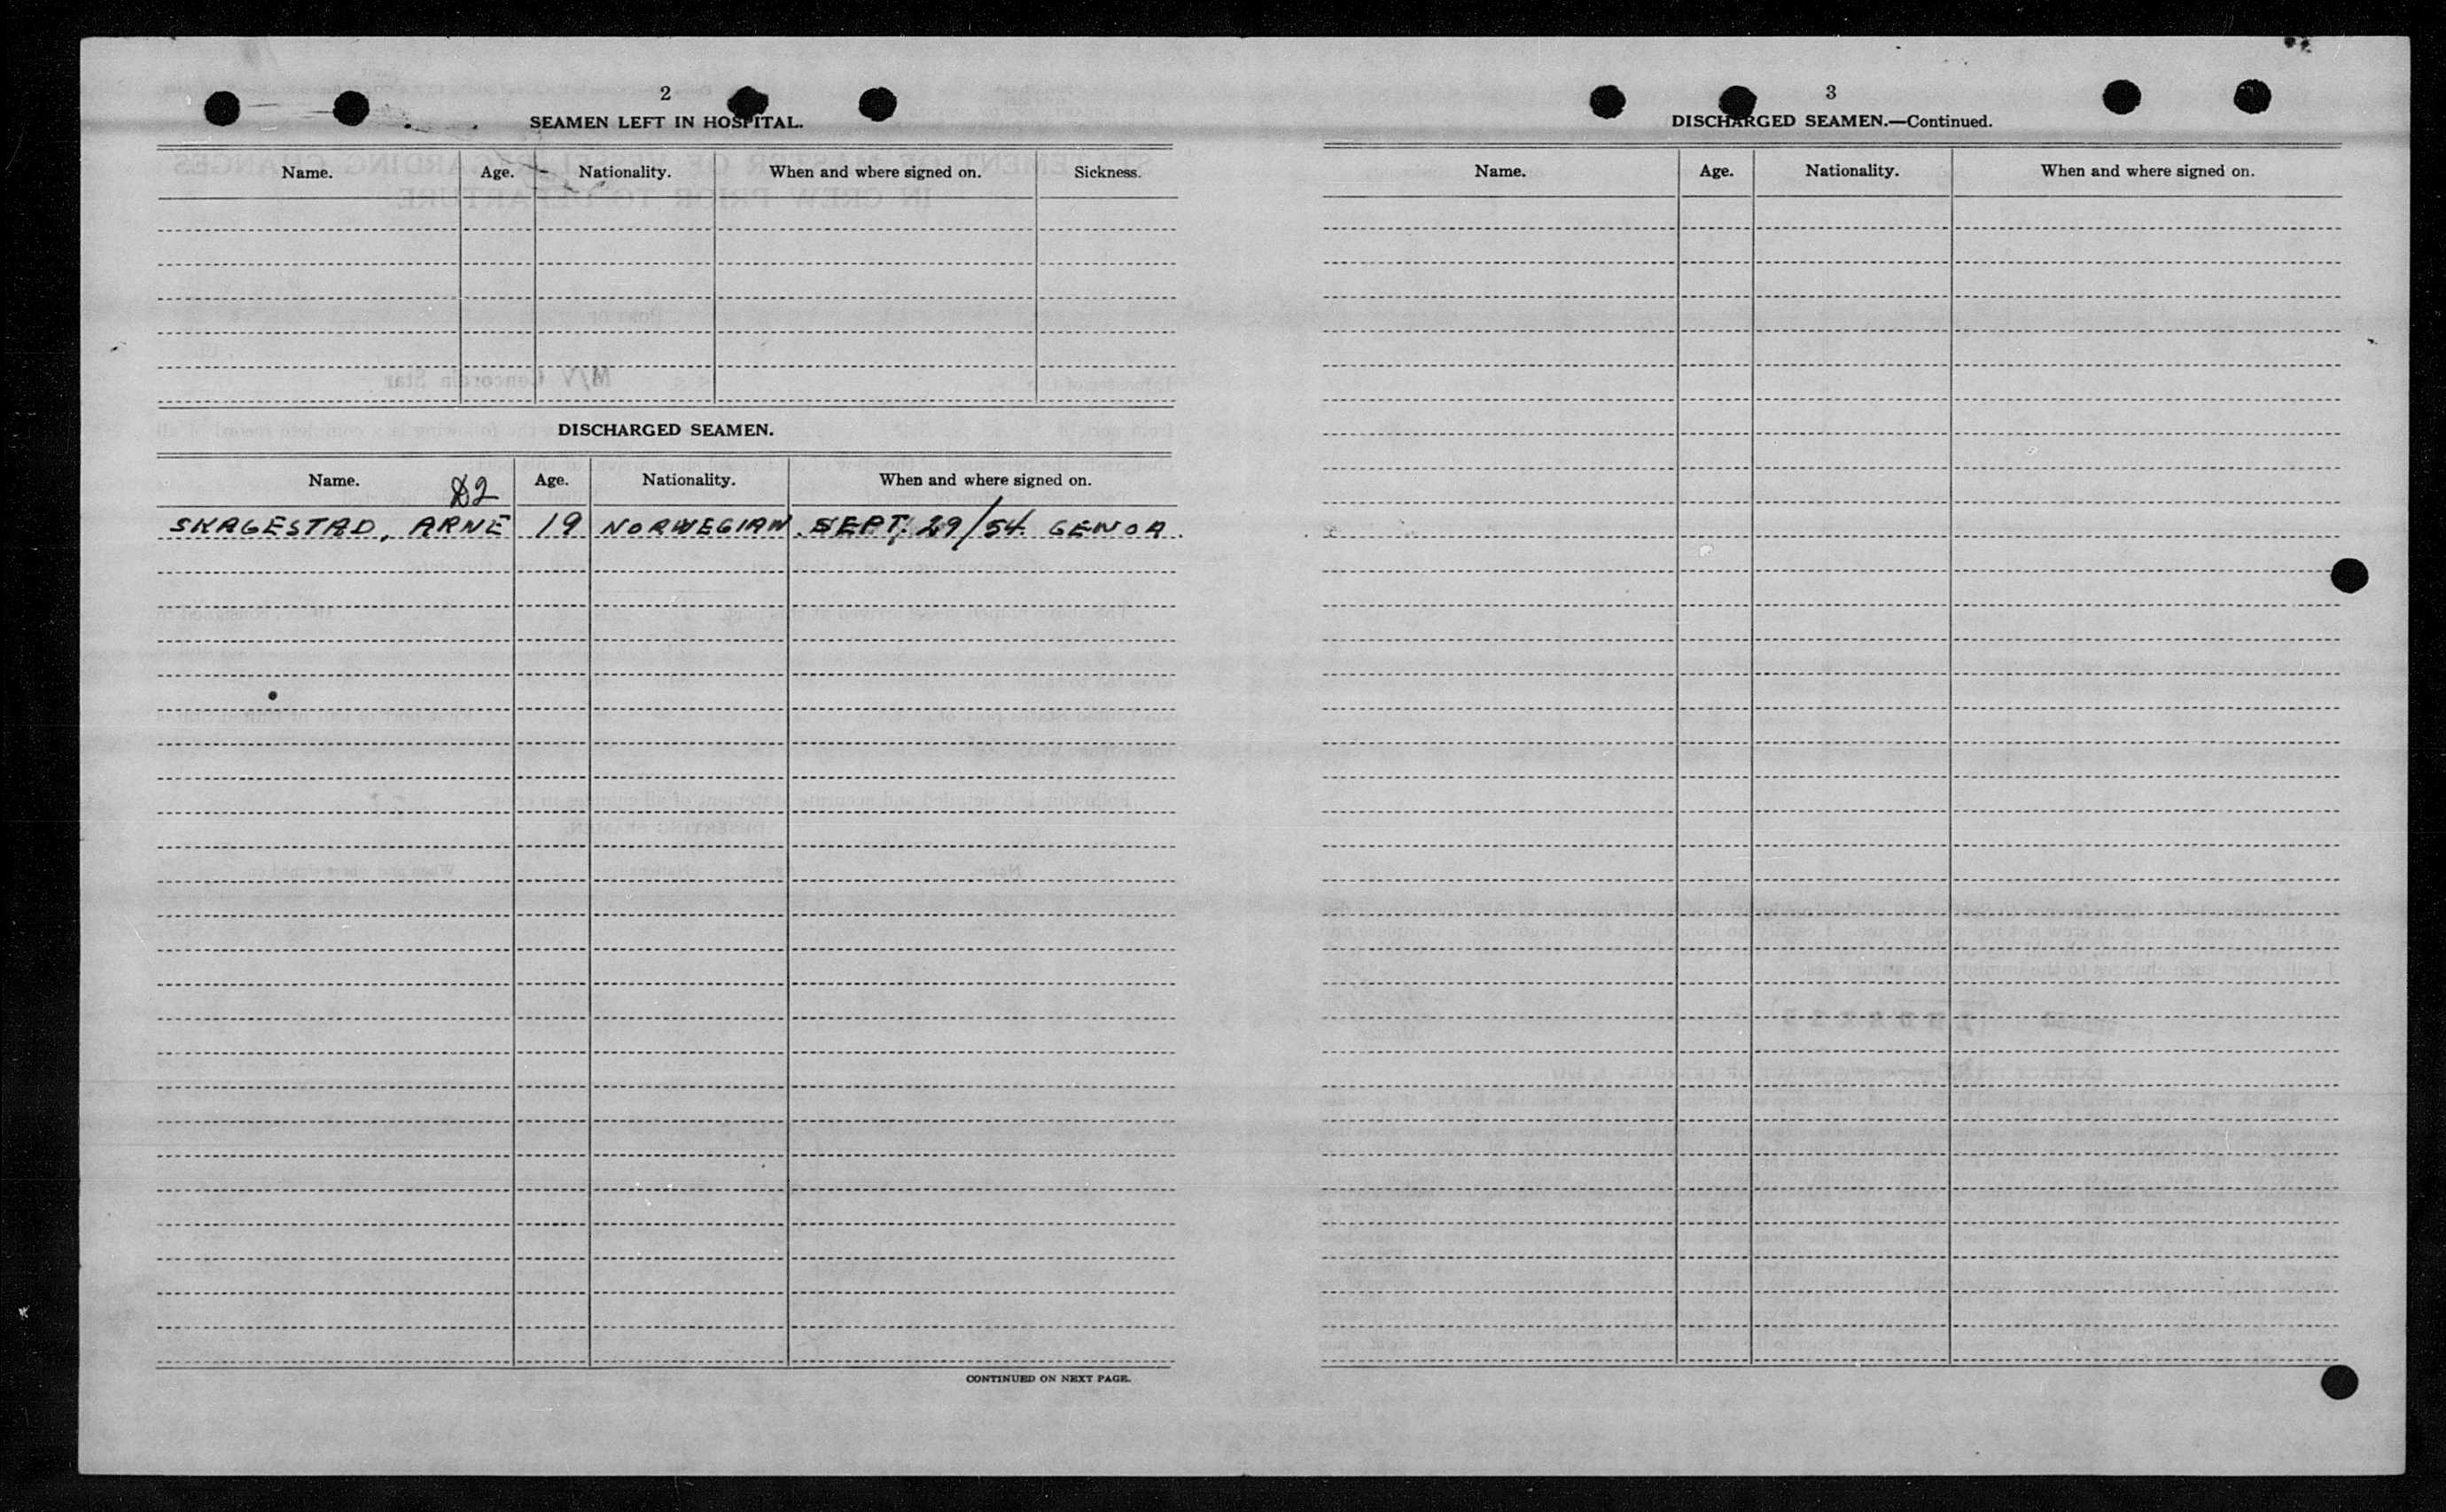 2
SEAMEN LEFT IN HOSPITAL.
Name. Age. Nationality. When and where signed on. Sickness.
DISCHARGED SEAMEN.
Name. D2 Age. Nationality. When and where signed on.
SKAGESTAD, ARNE 19 NORWEGIAN SEPT. 29/54 GENOA.
CONTINUED ON NEXT PAGE.
3
DISCHARGED SEAMEN.—Continued.
Name. Age. Nationality. When and where signed on.